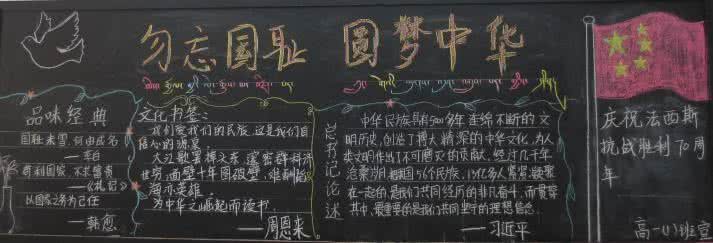 勿忘国耻 圆梦中华
品味经典
国耻未雪,何由成名
——李白
苟利国家,不求富贵
——《礼记》
以国家之务为己任
——韩愈
文化书签:
我们爱我们的民族,这是我们自
信心的源泉
大江歌罢掉头东,邃密群科济
世穷,面壁十年图破壁,难酬蹈
海亦英雄。
为中华之崛起而读书。
——周恩来
总书记论述
中华民族具有5000多年连绵不断的文
明历史,创造了博大精深的中华文化,为人
类文明作出了不可磨灭的贡献。经过几千年
沧桑,把我国56个民族、13亿多人紧紧凝聚
在一起的,是我们共同经历的非凡奋斗,而贯穿
其中、最重要的是我们共同坚守的理想信念
——习近平
庆祝法西斯
抗战胜利70周
年
高一(1)班宣